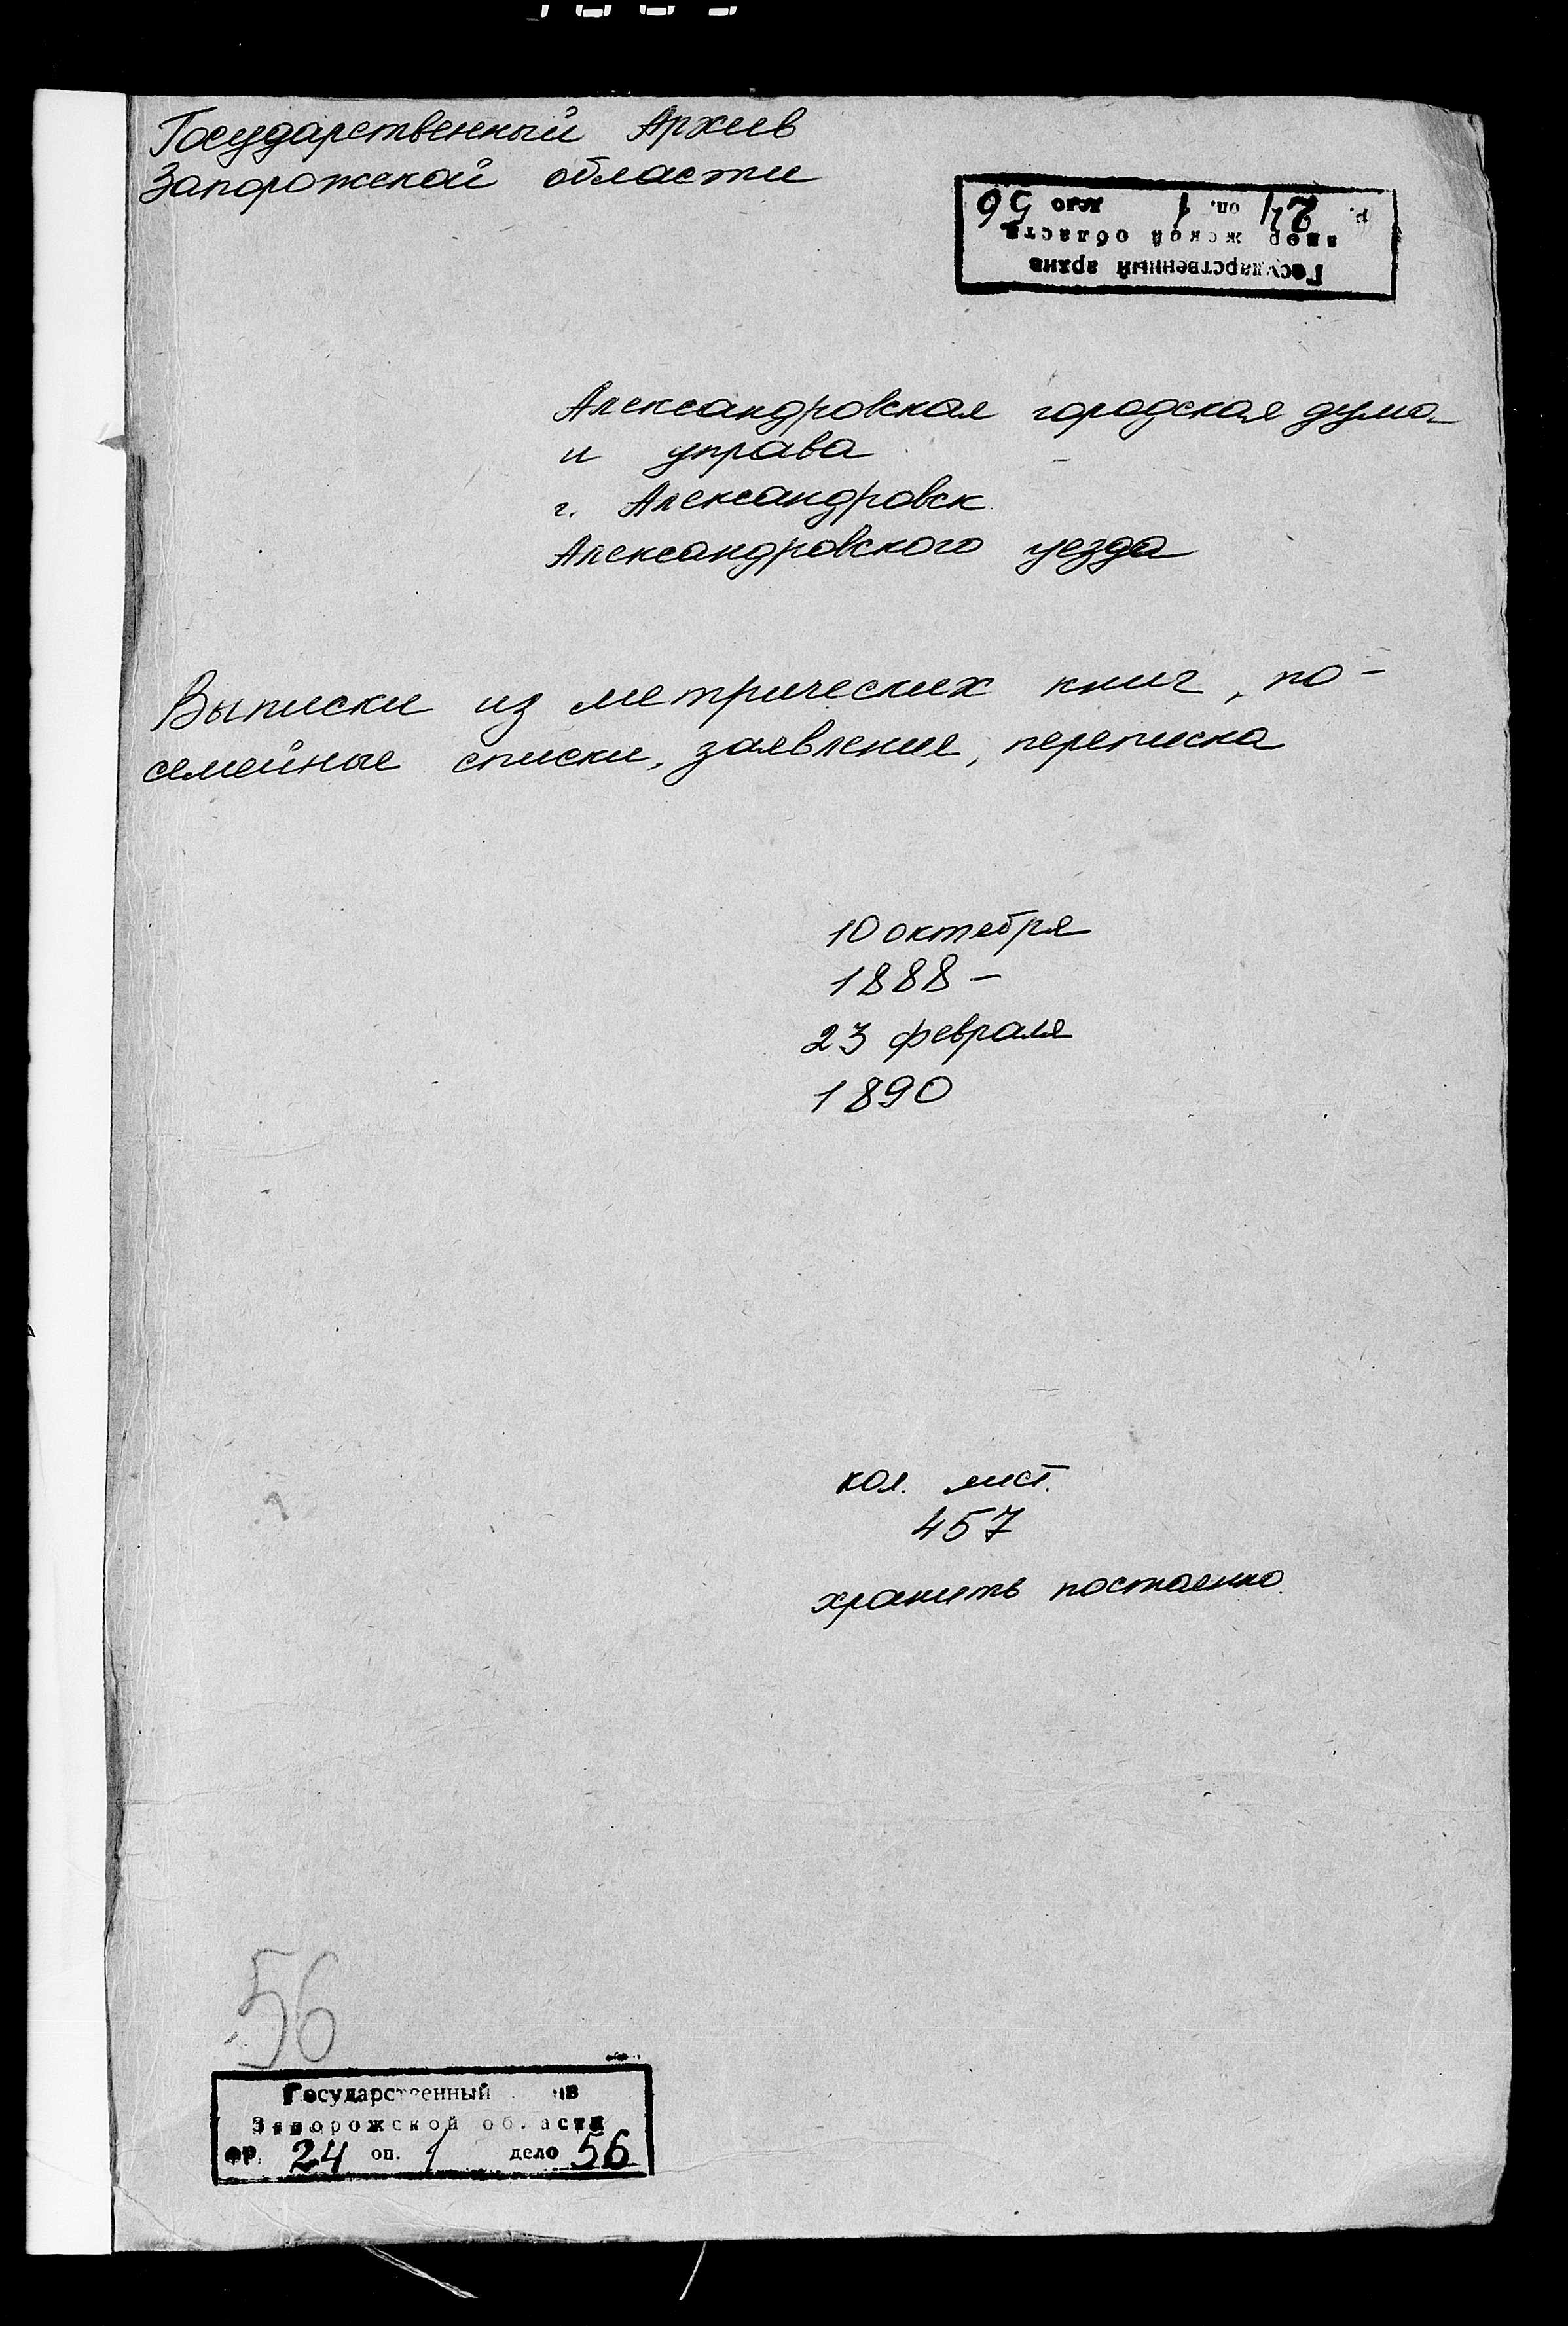 Государственный Архив
Запорожской области
Государственный архив
жской области
24 оп. 1 дело 56
Александровская городская дума
и управа
г. Александровск
Александровского уезда
Выписки из метрических книг, по-
семейные списки, заявления, переписка
10 октября
1888 –
23 февраля
1890
кол. лист.
457
хранить постоянно
56
Государственный
Запорожской области
фр. 24 оп. 1 дело 56